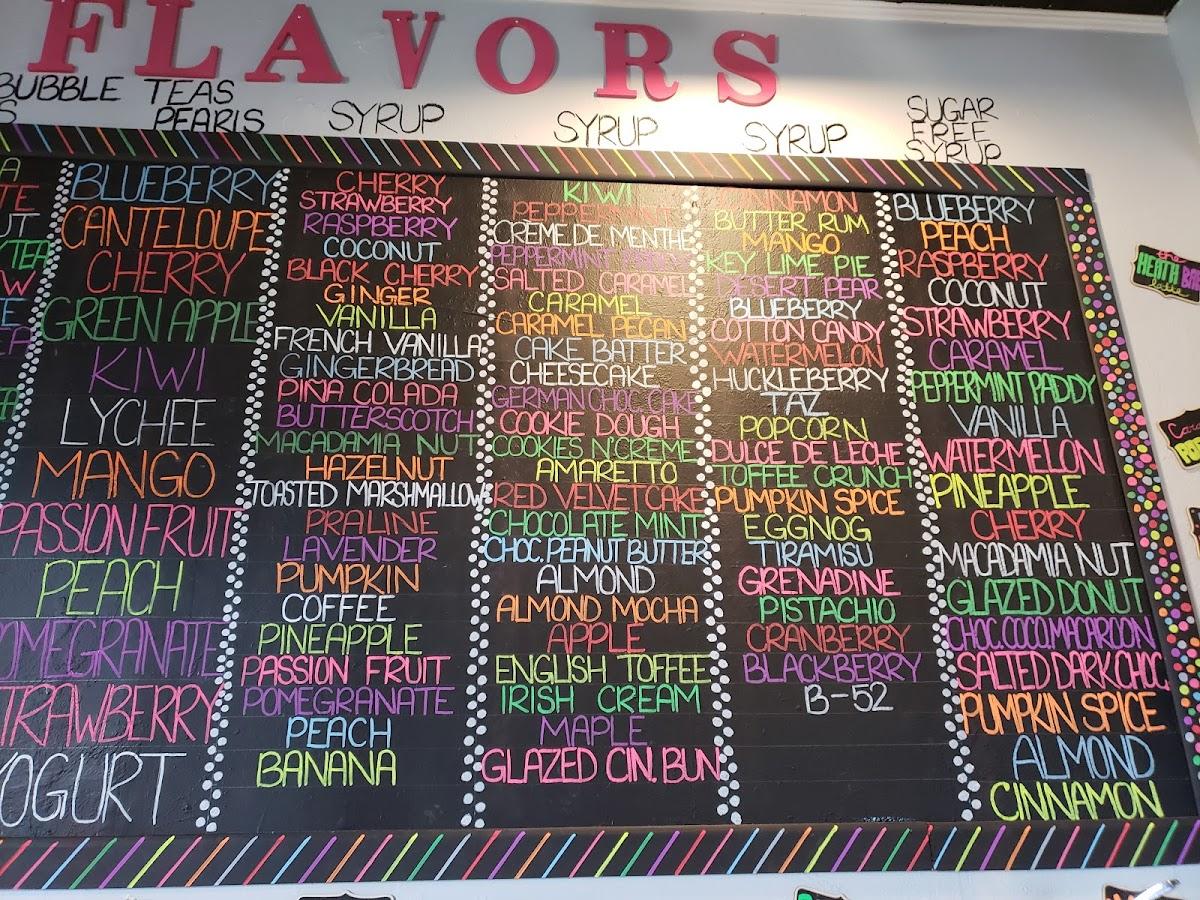 FLAVORS
BUBBLE TEAS
PEARLS
SYRUP
SYRUP
SYRUP
SUGAR
FREE
SYRUP
BLUEBERRY
CANTELOUPE
CHERRY
GREEN APPLE
KIWI
LYCHEE
MANGO
PASSION FRUIT
PEACH
OMEGRANATE
TRAWBERRY
YOGURT
CHERRY
STRAWBERRY
RASPBERRY
COCONUT
BLACK CHERRY
GINGER
VANILLA
FRENCH VANILLA
GINGERBREAD
PIÑA COLADA
BUTTERSCOTCH
MACADAMIA NUT
HAZELNUT
TOASTED MARSHMALLOW
PRALINE
LAVENDER
PUMPKIN
COFFEE
PINEAPPLE
PASSION FRUIT
POMEGRANATE
PEACH
BANANA
KIWI
PEPPERMINT
CRÈME DE MENTHE
PEPPERMINT
SALTED CARAMEL
CARAMEL
CARAMEL PECAN
CAKE BATTER
CHEESECAKE
GERMAN CHOC. CAKE
COOKIE DOUGH
COOKIES N'CRÈME
AMARETTO
RED VELVET CAKE
CHOCOLATE MINT
CHOC. PEANUT BUTTER
ALMOND
ALMOND MOCHA
APPLE
ENGLISH TOFFEE
IRISH CREAM
MAPLE
GLAZED CIN. BUN
CINNAMON
BUTTER RUM
MANGO
KEY LIME PIE
DESERT PEAR
BLUEBERRY
COTTON CANDY
WATERMELON
HUCKLEBERRY
TAZ
POPCORN
DULCE DE LECHE
TOFFEE CRUNCH
PUMPKIN SPICE
EGGNOG
TIRAMISU
GRENADINE
PISTACHIO
CRANBERRY
BLACKBERRY
B-52
BLUEBERRY
PEACH
RASPBERRY
COCONUT
STRAWBERRY
CARAMEL
PEPPERMINT PADDY
VANILLA
WATERMELON
PINEAPPLE
CHERRY
MACADAMIA NUT
GLAZED DONUT
CHOC.COCO.MACAROON
SALTED DARK CHOC
PUMPKIN SPICE
ALMOND
CINNAMON
HEATH BAR